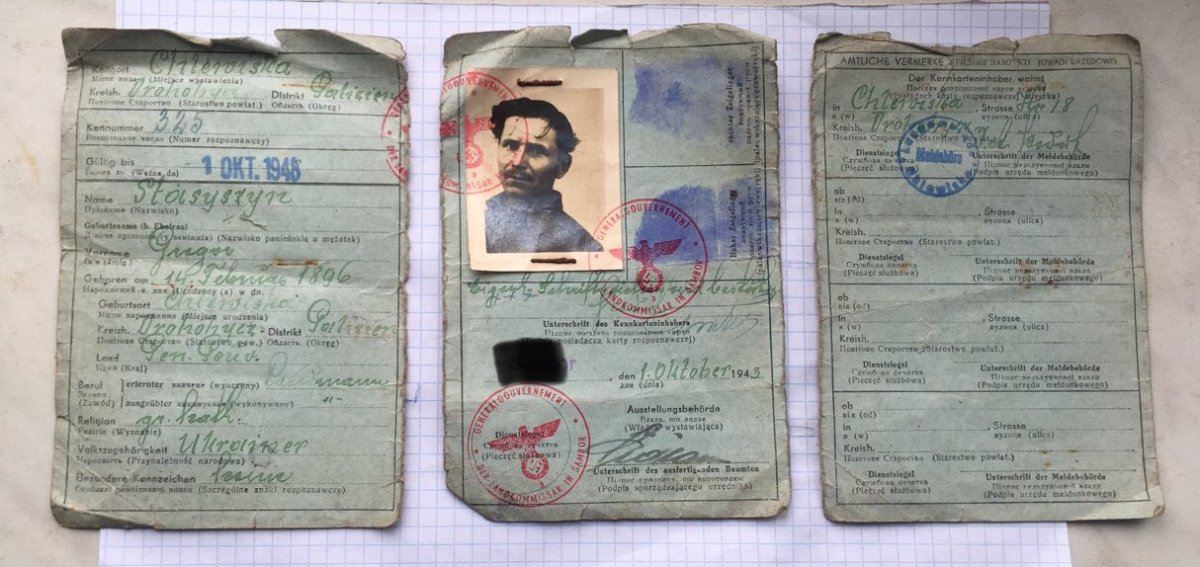 Kennort Chlewiska
Місце видачі (Miejsce wystawienia)
Kreish. Drohobycz Distrikt Galizien
Повітове Староство (Starostwo powiat.) Область (Okręg)
Kennummer 325
Розпізнавче число (Numer rozpoznawczy)
Gültig bis 1 OKT. 1948
Важна до (Ważna do)
Name Stasyszyn
Прізвище (Nazwisko)
Geburtsname (b. Ehefrau)
(Nazwisko panieńskie u mężatek)
Vorname Gregor
Geboren am 14. Februar 1896
Народжений в дні (Urodzony (a) w dn.
Geburtsort Chlewiska
Місце народження (Miejsce urodzenia)
Kreish. Drohobycz - Distrikt Galizien
Повітове Староство (Starostwo pow.) Область (Okręg)
Land Gen. Gouv.
Край (Kraj)
Beruf erlernter (wyuczony)
Звання
(Zawód) ausgeübter (wykonywany) -"-
Religion gr. kath.
Релігія (Wyznanie)
Volkszugehörigkeit Ukrainer
Народність (Przynależność narodowa)
Besondere Kennzeichen keine
Особливі розпізнавчі знаки (Szczególne znaki rozpoznawcze)
rechter Zeigefinger
linker Zeigefinger
GENERALGOUVERNEMENT
DER LANDKOMMISSAR IN SAMBOR
Unterschrift des Kennkarteninhabers
Підпис посідача розпізнавчої карти
(Podpis posiadacza karty rozpoznawczej)
, den 1. Oktober 1943
дня (dnia)
GENERALGOUVERNEMENT
DER LANDKOMMISSAR IN SAMBOR
Ausstellungsbehörde
Влада, що видає
(Władza wystawiająca)
Dienstsiegel
Службова печатка
(Pieczęć służbowa)
Unterschrift des ausfertigenden Beamten
Підпис урядовця, що виготовив
(Podpis sporządzającego urzędnika)
AMTLICHE VERMERKE (UWAGI URZĘDOWE)
Der Kennkarteninhaber wohnt
Посідач розпізнавчої карти мешкає
(Posiadacz karty rozpoznawczej mieszka)
in Chlewiska, Strasse Nr 18
в (w) вулиця (ulica)
Kreish.
Повітове Староство (Starostwo powiat.)
Dienstsiegel Unterschrift der Meldebehörde
Службова печатка Підпис мельдункової влади
(Pieczęć służbowa) (Podpis urzędu meldunkowego)
Meldebüro
ab
від (od)
in , Strasse
в (w) вулиця (ulica)
Kreish.
Повітове Староство (Starostwo powiat.)
Dienstsiegel Unterschrift der Meldebehörde
Службова печатка Підпис мельдункової влади
(Pieczęć służbowa) (Podpis urzędu meldunkowego)
ab
від (od)
in , Strasse
в (w) вулиця (ulica)
Kreish.
Повітове Староство (Starostwo powiat.)
Dienstsiegel Unterschrift der Meldebehörde
Службова печатка Підпис мельдункової влади
(Pieczęć służbowa) (Podpis urzędu meldunkowego)
ab
від (od)
in , Strasse
в (w) вулиця (ulica)
Kreish.
Повітове Староство (Starostwo powiat.)
Dienstsiegel Unterschrift der Meldebehörde
Службова печатка Підпис мельдункової влади
(Pieczęć służbowa) (Podpis urzędu meldunkowego)